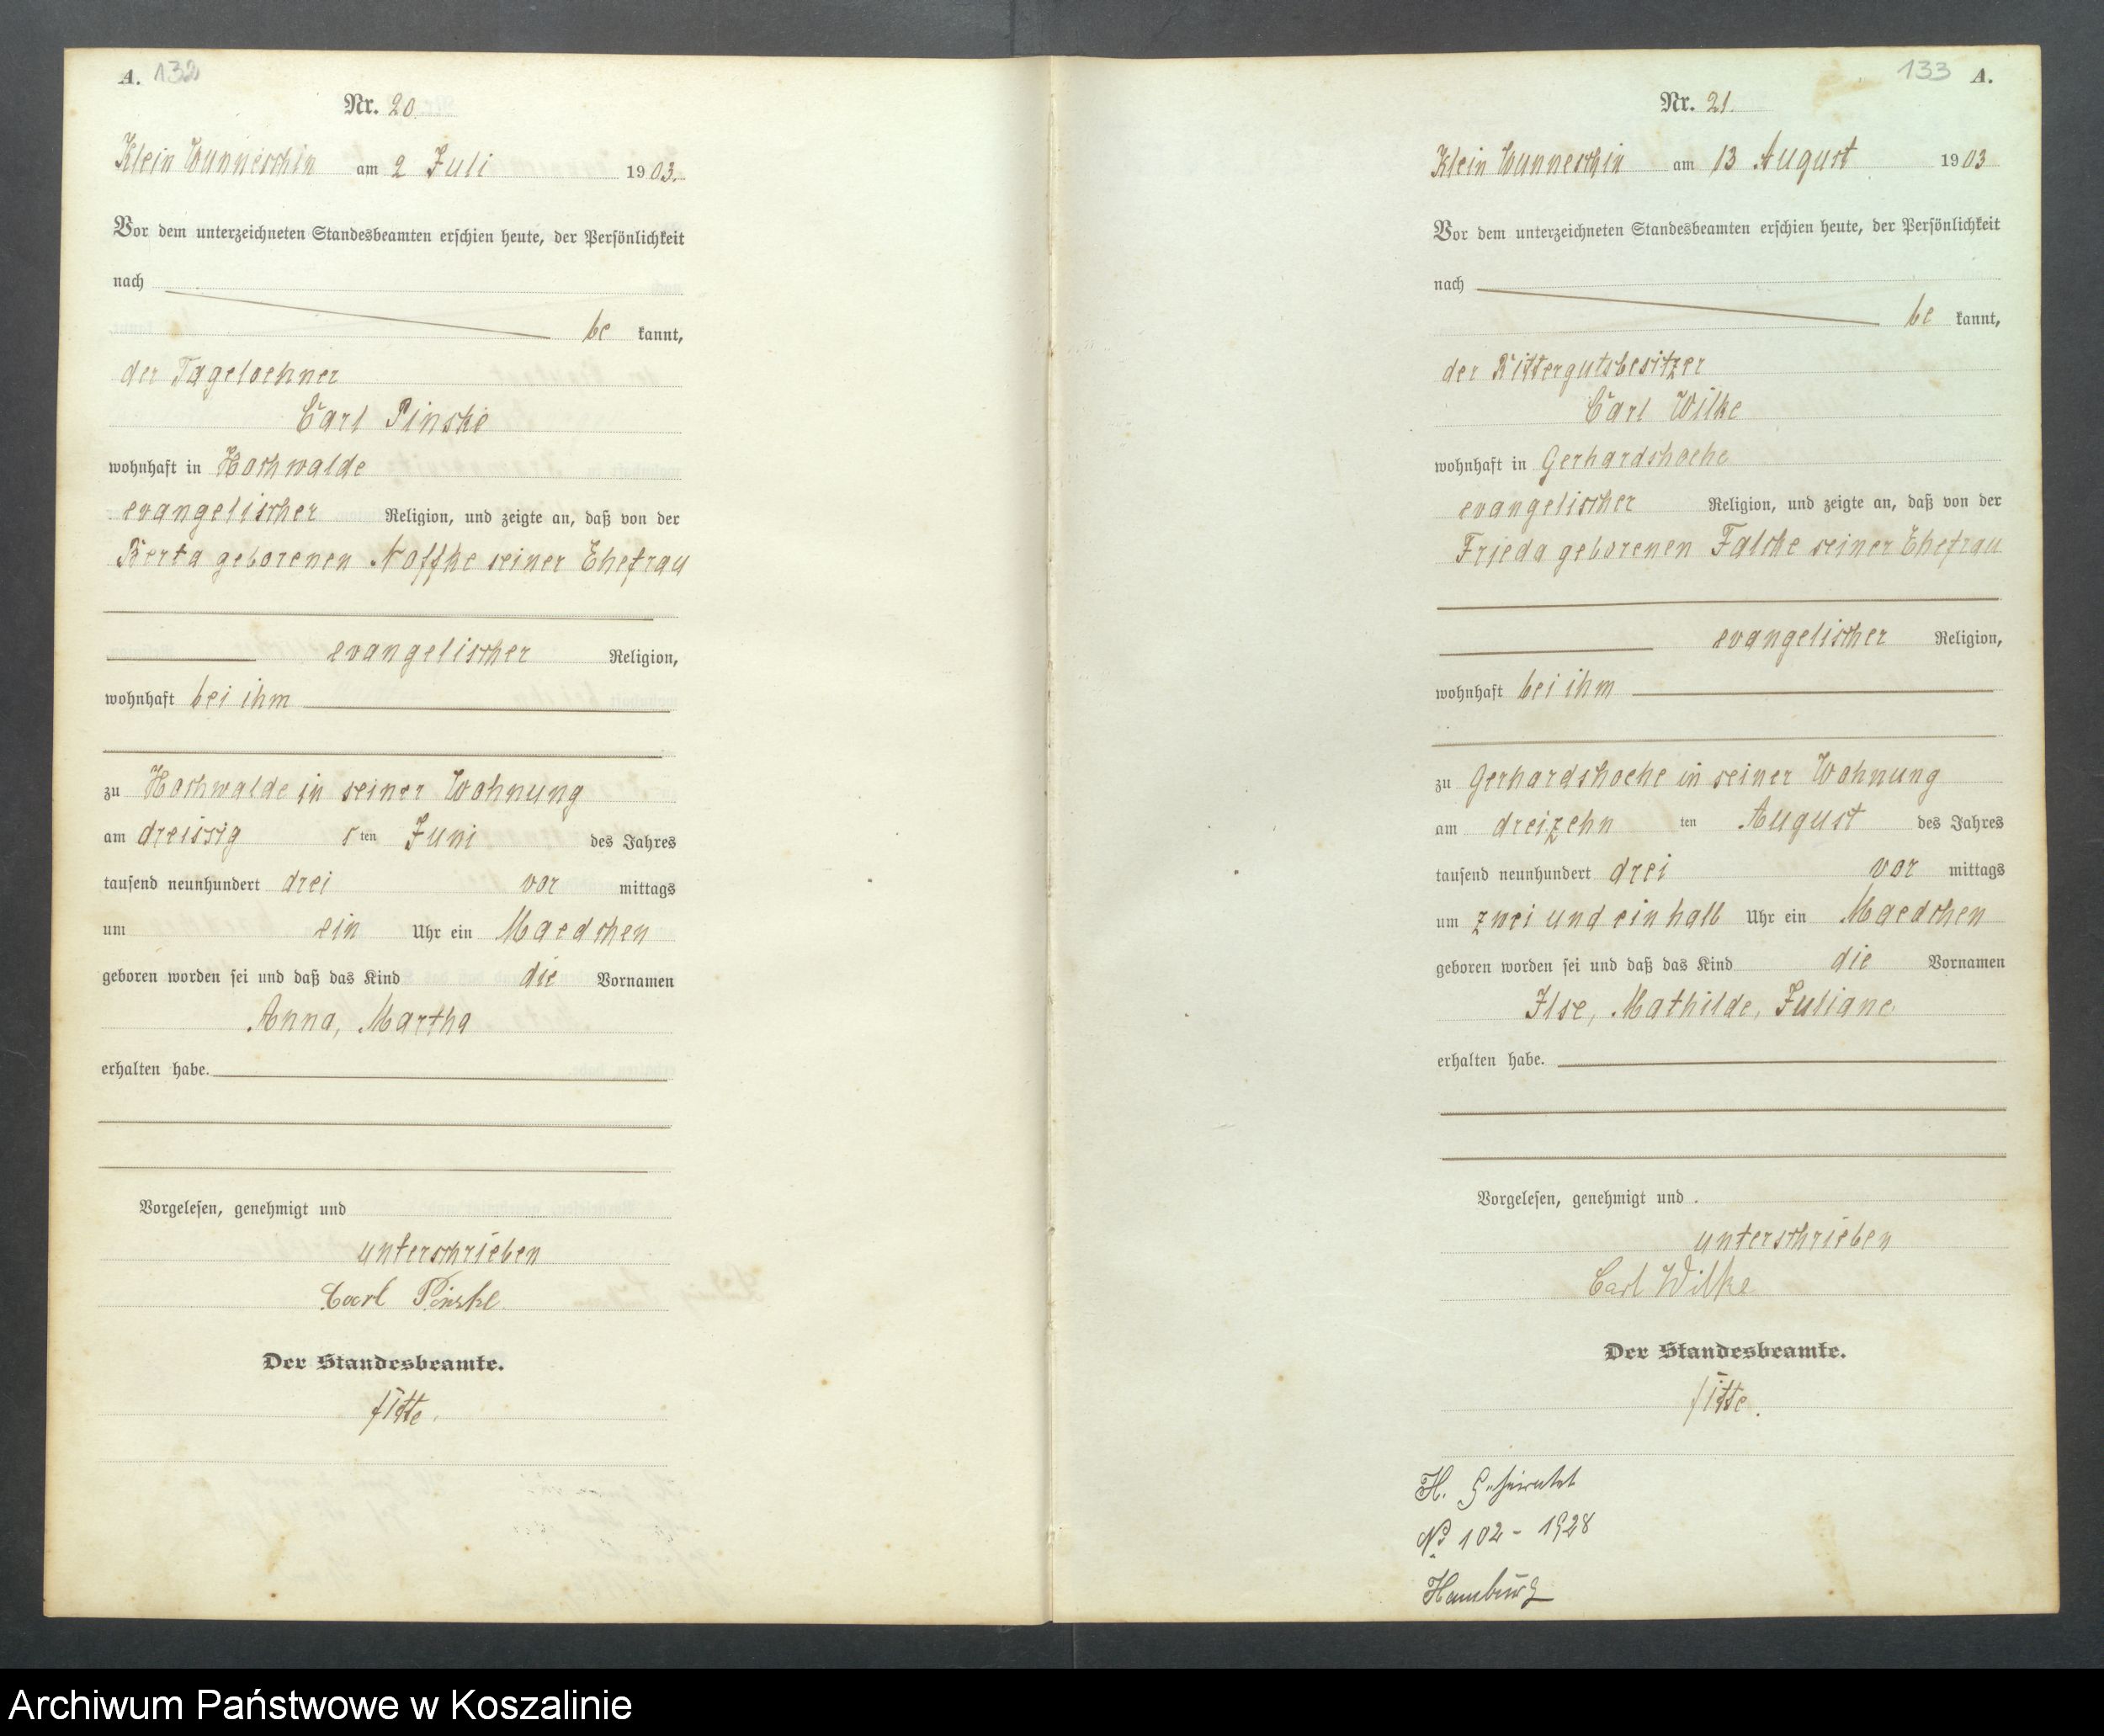 A. 132
Nr. 20.
Klein Wunneschin am 2 Juli 1903.
Vor dem unterzeichneten Standesbeamten erschien heute, der Persönlichkeit
nach
be kannt,
der Tageloehner
Carl Pinske
wohnhaft in Hochwalde
evangelischer Religion, und zeigte an, daß von der
Berta geborenen Noffke seiner Ehefrau
evangelischer Religion,
wohnhaft bei ihm
zu Hochwalde in seiner Wohnung
am dreissig sten Juni des Jahres
tausend neunhundert drei vor mittags
um ein Uhr ein Maedchen
geboren worden sei und daß das Kind die Vornamen
Anna, Martha
erhalten habe.
Vorgelesen, genehmigt und
unterschrieben
Carl Pinske
Der Standesbeamte.
133 A.
Nr. 21.
Klein Wunneschin am 13 August 1903
Vor dem unterzeichneten Standesbeamten erschien heute, der Persönlichkeit
nach
be kannt,
der Rittergutsbesitzer
Carl Wilke
wohnhaft in Gerhardshoehe
evangelischer Religion, und zeigte an, daß von der
Frieda geborenen Falcke seiner Ehefrau
evangelischer Religion,
wohnhaft bei ihm
zu Gerhardshoehe in seiner Wohnung
am dreizehn ten August des Jahres
tausend neunhundert drei vor mittags
um zwei und ein halb Uhr ein Maedchen
geboren worden sei und daß das Kind die Vornamen
Ilse, Mathilde, Juliane
erhalten habe.
Vorgelesen, genehmigt und
unterschrieben
Carl Wilke
Der Standesbeamte.
H. Geheiratet
No 102 - 1928
Hamburg
Archiwum Państwowe w Koszalinie